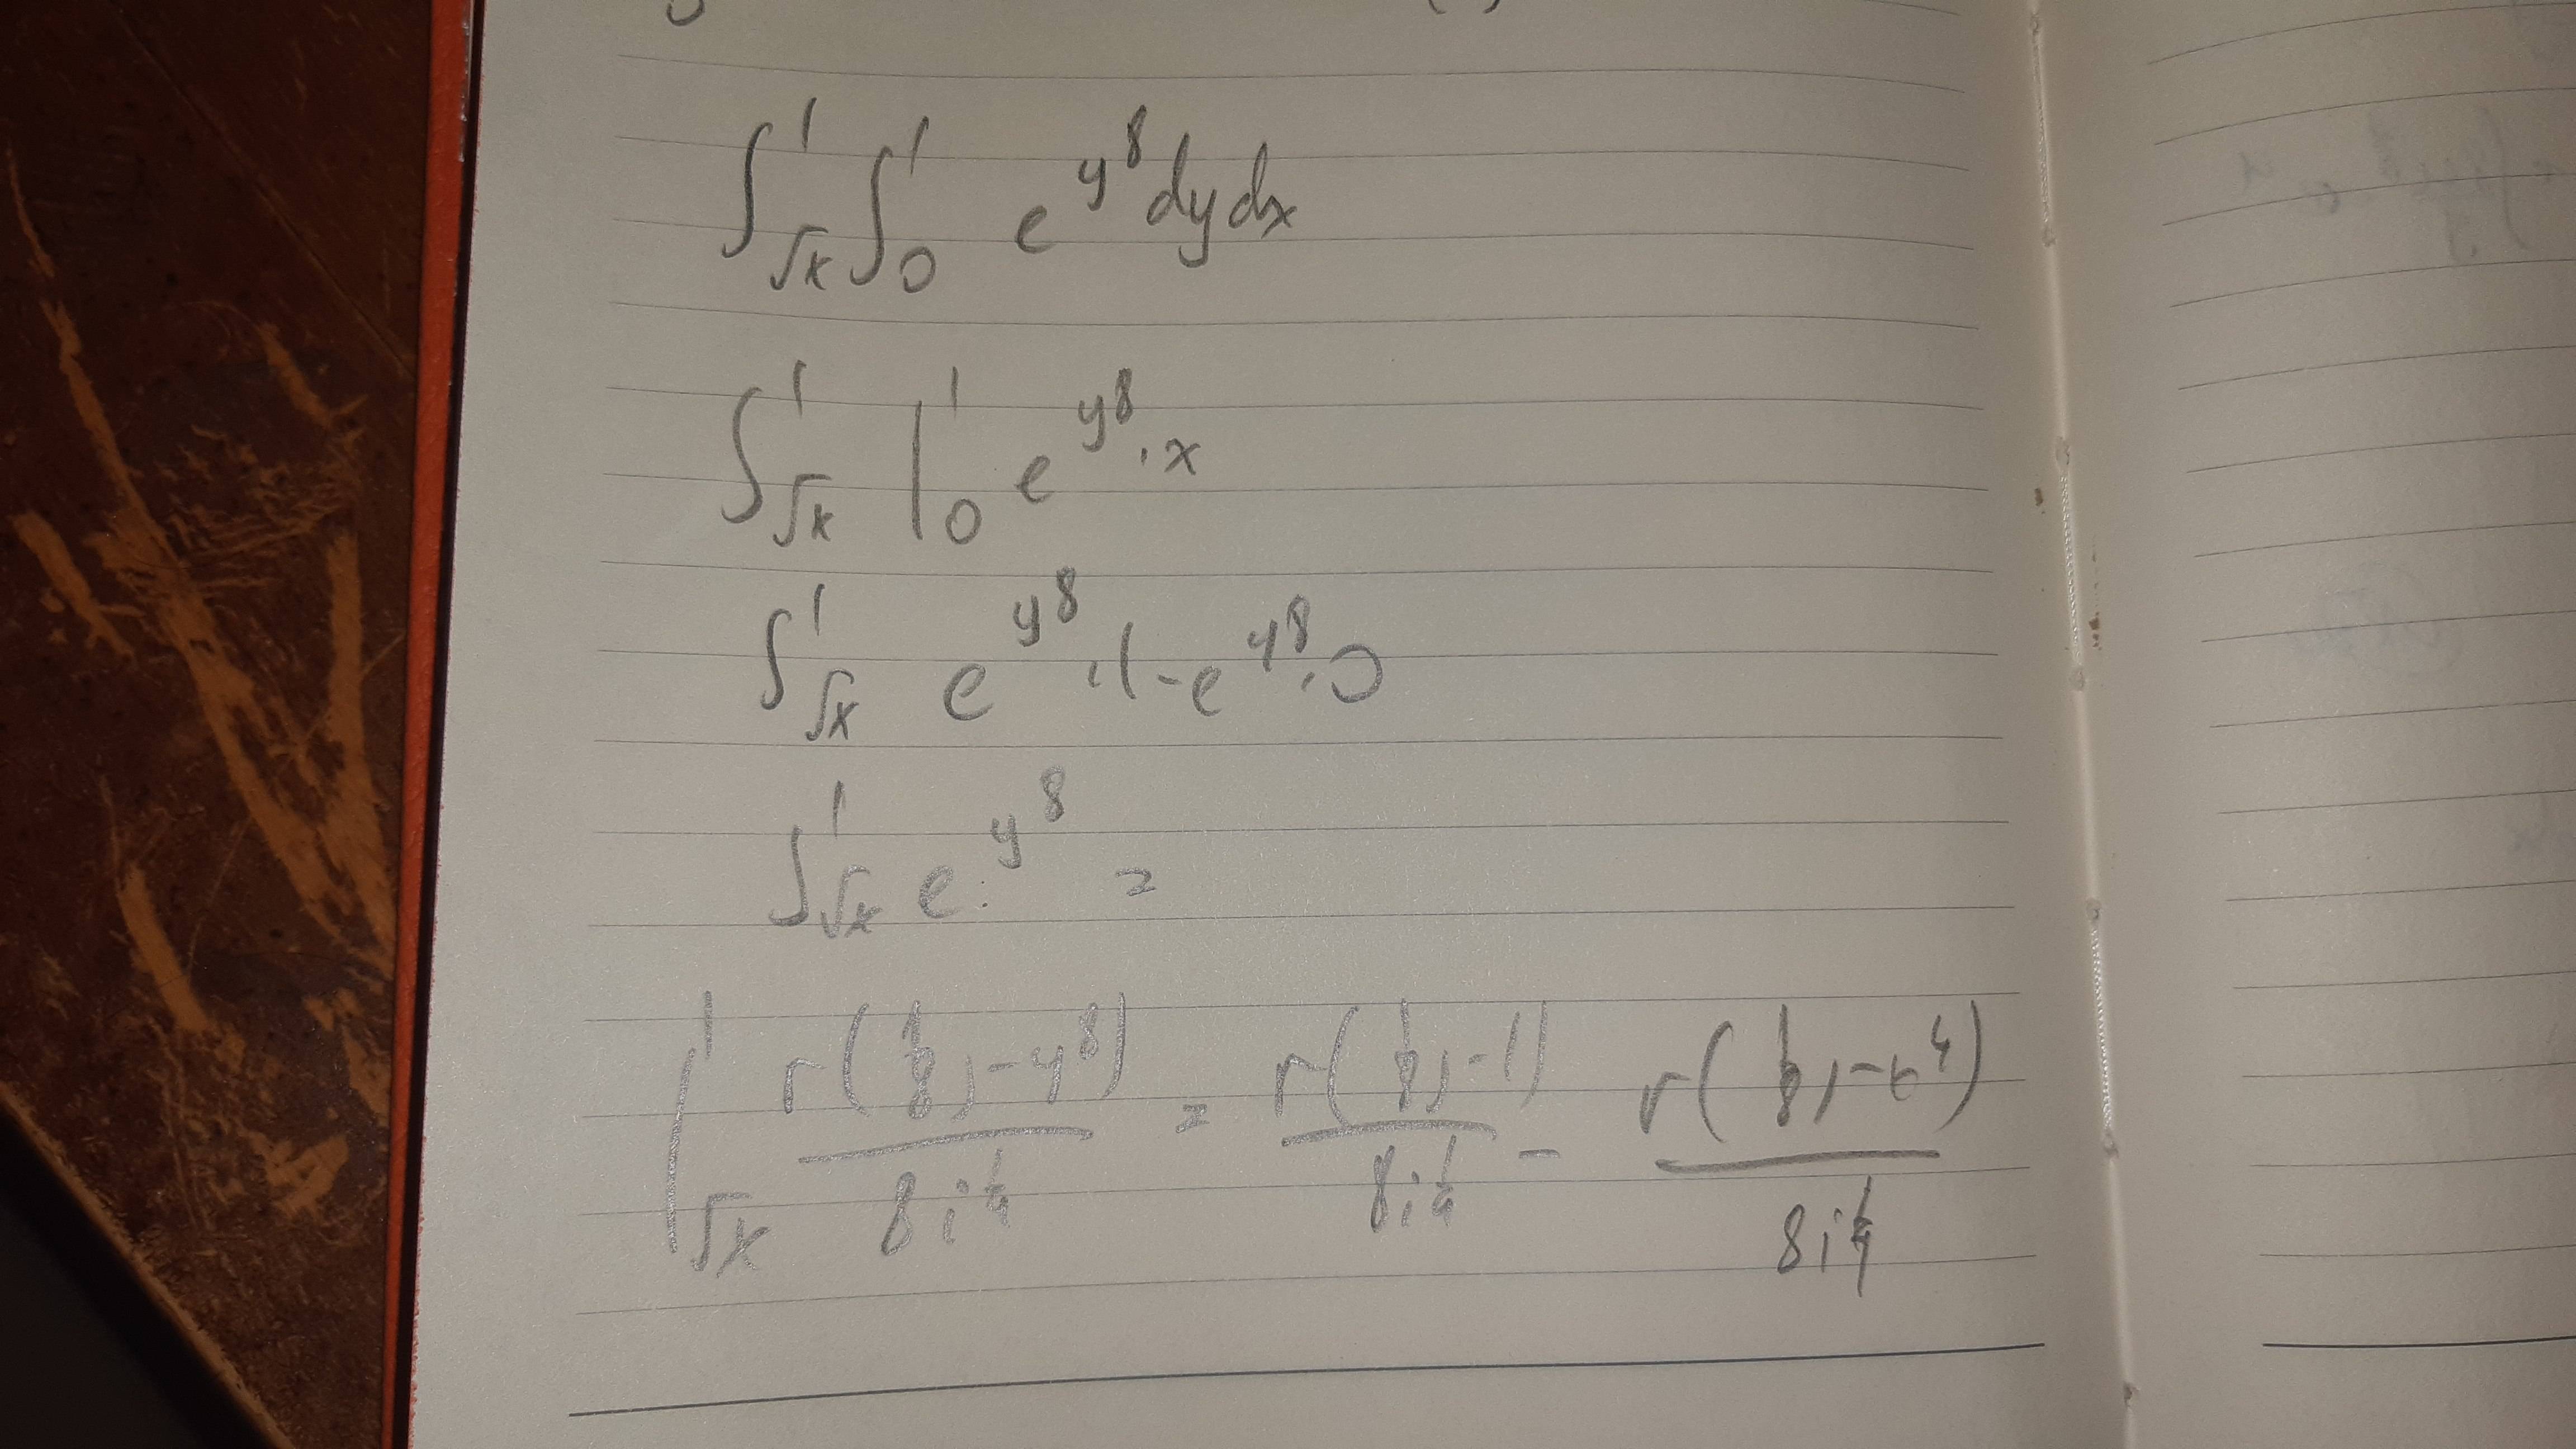 ∫_√x^1 ∫_0^1 e^{y^8} dy dx
∫_√x^1 |_0^1 e^{y^8} · x
∫_√x^1 e^{y^8} · 1 - e^{y^8} · 0
∫_√x^1 e^{y^8} =
|_√x^1 Γ(1/8, -y^8) / 8i^{1/4} = Γ(1/8, -1) / 8i^{1/4} - Γ(1/8, ) / 8i^{1/4}